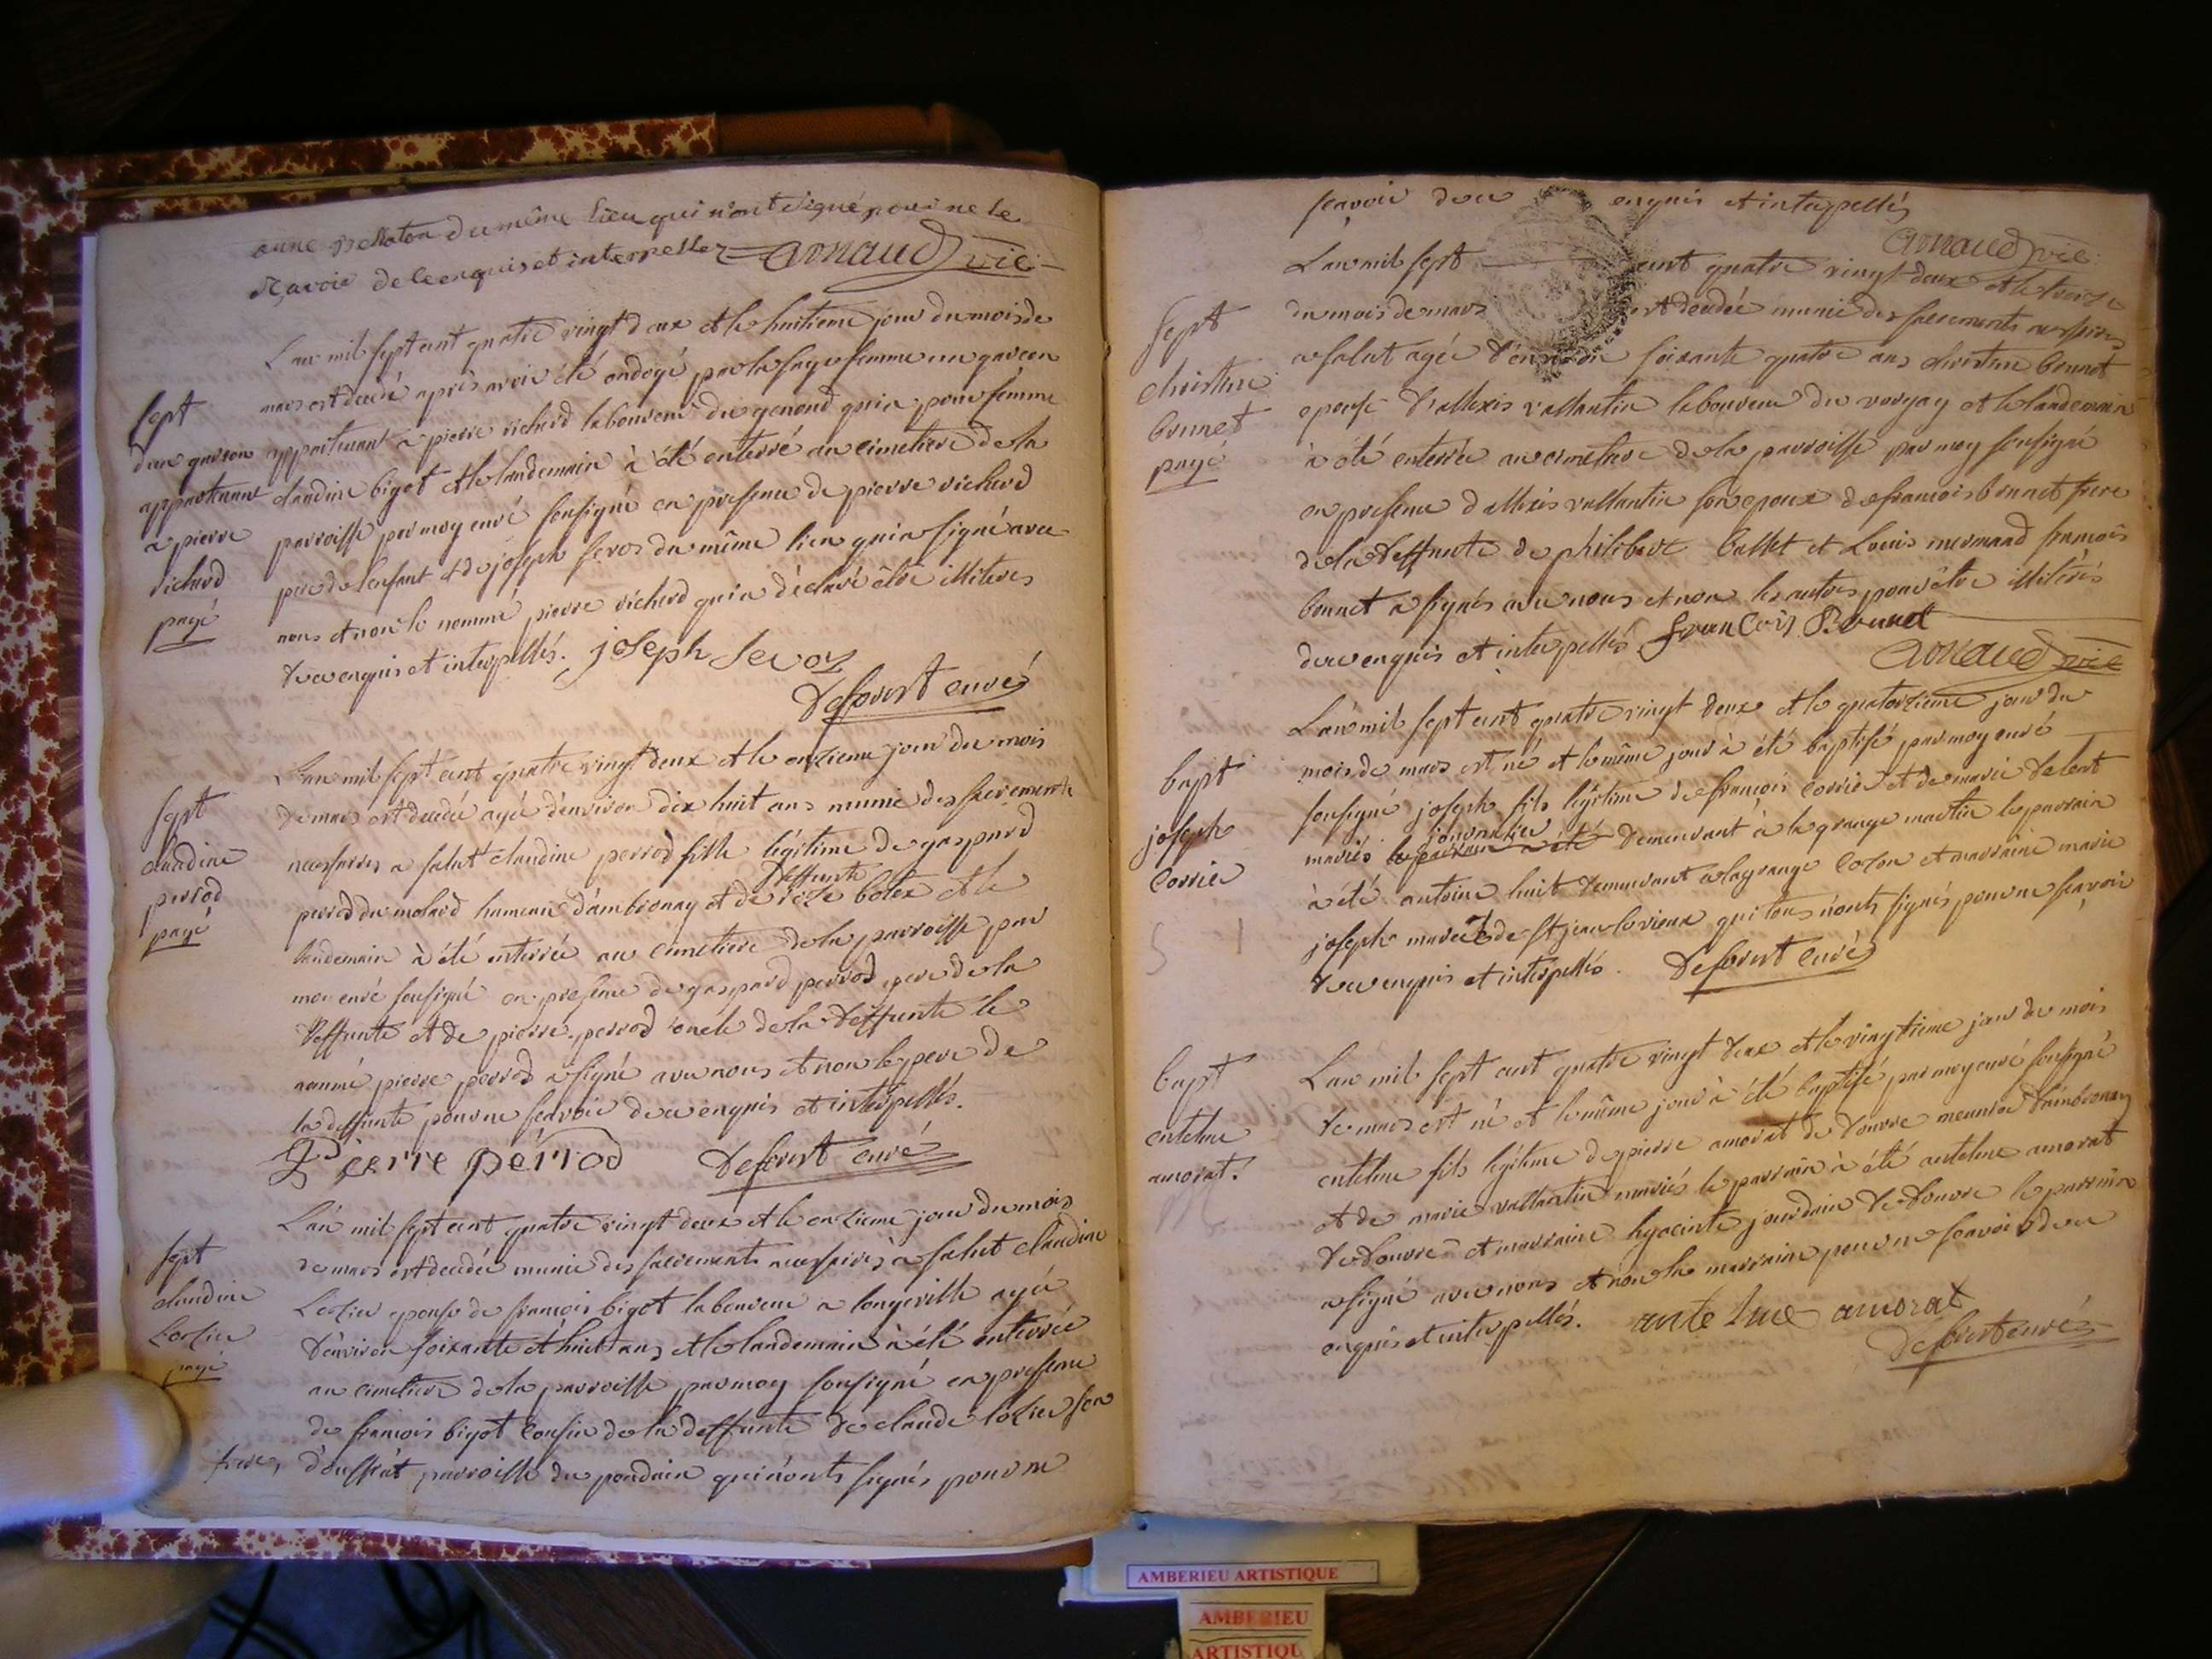 anne du même lieu qui n'ont signé pour ne le
sçavoir de ce enquis et interpellez Arnaud vic.
L'an mil sept cent quatre vingt deux et le huitieme jour du mois de
mars est decedé après avoir été ondoyé par la sage femme un garçon
sept
d'un garson
appartenant
a pierre
richerd
payé
appartenant a pierre richerd laboureur du genoud qui a pour femme
claudine bigot et le landemain à été enterré au cimetiere de la
parroisse par moy curé sousigné en presence de pierre richerd
pere de l'enfant et de joseph sevos du même lieu qui a signé avec
nous et non le nommé pierre richerd qui a déclaré être illiteres
de ce enquis et interpellés. joseph Sevoz
Deforest curé
L'an mil sept cent quatre vingt deux et le onzieme jour du mois
sept
claudine
perrod
payé
de mars est decedée agée d'environ dix huit ans munie des sacrements
necessaires a salut claudine perrod fille légitime de gaspard
deffunte
perrod du molard hameau d'ambronay et de rose et le
landemain à été enterrée au cimetiere de la parroisse par
moi curé sousigné en presence de gaspard perrod pere de la
deffunte et de pierre perrod oncle de la deffunte le
nommé pierre perrod a signé avec nous et non le pere de
la deffunte pour ne sçavoir de ce enquis et interpellés.
Pierre pérrod Deforest curé
L'an mil sept cent quatre vingt deux et le onzieme jour du mois
sept
claudine
Lozier
payé
de mars est decedée munie des sacrements necessaires a salut claudine
Lozier epouse de françois bigot laboureur a longeville agée
d'environ soixante et huit ans et le landemain à été enterrée
au cimetiere de la parroisse par moy sousigné en presence
de françois bigot cousin de la deffunte de claude lozier son
frere, parroisse du pondain qui n'onts signés pour ne
sçavoir de ce enquis et interpellés
Arnaud vic.
L'an mil sept cent quatre vingt deux et le treize
sept
christine
bonnet
payé
du mois de mars est decedée munie des sacrements necessaires
a salut agée d'environ soixante quatre ans christine bonnet
epouse d'allexis vallantin laboureur du vorgay et le landemain
à été enterrée au cimetiere de la parroisse par moy sousigné
en presence d'allexis vallantin son epoux de françois bonnet frere
de la deffunte de philibert ballet et Louis mermand françois
bonnet a signés avec nous et non les autres pour être illiterés
de ce enquis et interpellés françois Bonnet
Arnaud vic
L'an mil sept cent quatre vingt deux et le quatorzieme jour du
bapt
joseph
Corrier
mois de mars est né et le même jour à été baptisé par moy curé
sousigné joseph fils légitime de françois Corrier et de marie
journalier
mariés le parrain a été demeurant à la grange martin le parrain
à été antoine huit demeurant a la grange Cozon et marraine marie
joseph de St jean le vieux qui tous n'onts signés pour ne sçavoir
de ce enquis et interpellés. Deforest curé
L'an mil sept cent quatre vingt deux et le vingtieme jour du mois
bapt
entelme
amorat.
de mars est né et le même jour à été baptisé par moy curé sousigné
entelme fils légitime de pierre amorat de douvre meunier d'ambronay
et de marie vallantin mariés le parrain à été antelme amorat
de douvre et marraine hyacinte jourdain de douvre le parrain
a signé avec nous et non la marraine pour ne sçavoir de ce
enquis et interpellés. antelme amorat
Deforest curé
AMBERIEU ARTISTIQUE
AMBERIEU
ARTISTIQU